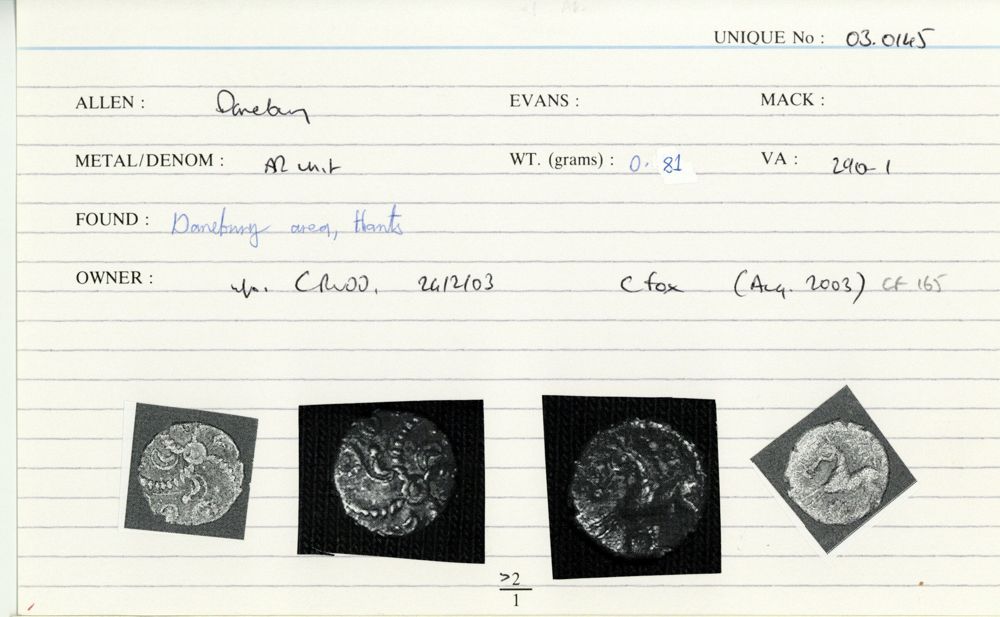 UNIQUE No : 03.0145
ALLEN : Danebury EVANS : MACK :
METAL/DENOM : AR unit WT. (grams) : 0.81 VA : 290-1
FOUND : Danebury area, Hants
OWNER : CR00, 24/2/03 C Fox (Aug. 2003) CF 165
>2
1